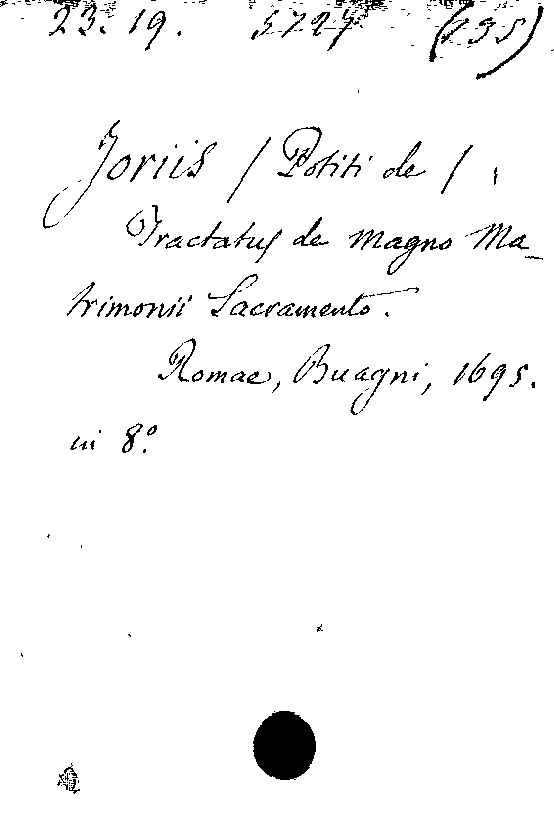 23. 19. 5727 (235)
Joriis / Potiti de / .
Tractatus de magno Ma_
trimonii Sacramento.
Romae, Buagni, 1695.
in 8.º